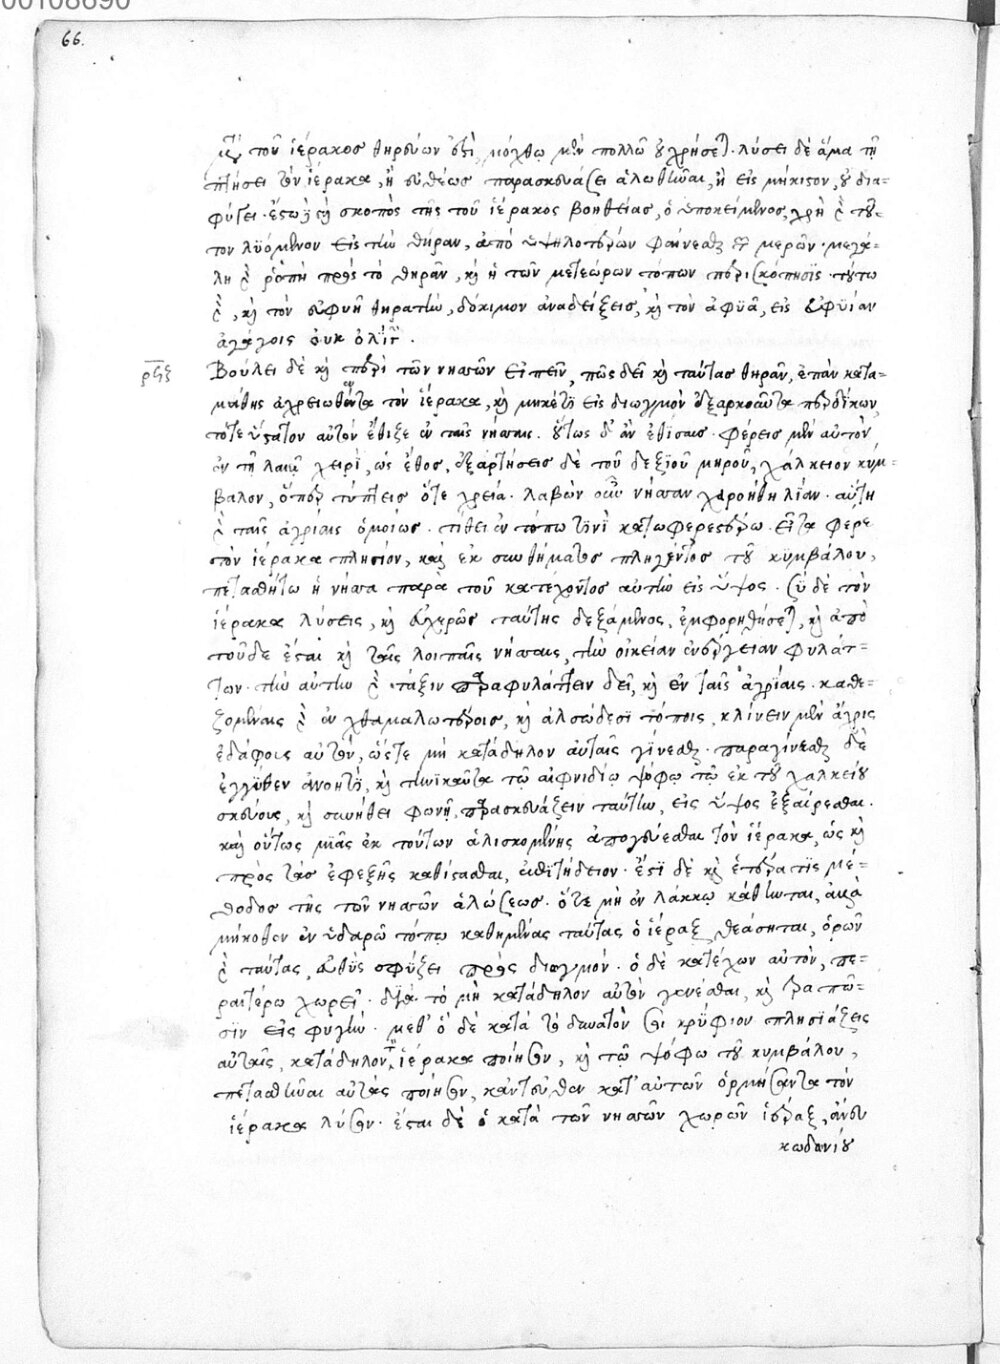 00108690
66.
τοῦ ἱέρακος θηρεύων ἐστὶ, μόχθῳ μὲν πολλῷ χρήσεται. λύσει δὲ ἅμα τῇ
πτήσει τὸν ἱέρακα, ἢ εὐθέως παρασκευάζει ἁλωθῆναι, ἢ εἰς μήκιστον, οὐ δια-
φύγει. ἔστω σοι σκοπὸς τῆς τοῦ ἱέρακος βοηθείας, ὁ ὑποκείμενος, χρὴ γὰρ τοῦ-
τον λυόμενον εἰς τὴν θήραν, ἀπὸ ὑψηλοτέρων φαίνεσθαι μερῶν. μεγά-
λη γὰρ ῥοπὴ πρὸς τὸ θηρᾶν, καὶ ἡ τῶν μετεώρων τόπων περισκόπησις. τούτω
γὰρ, καὶ τὸν εὐφυῆ θηρατὴν, δόκιμον ἀναδείξεις, καὶ τὸν ἀφυᾶ, εἰς εὐφυΐαν
ἀγάγοις οὐκ ὀλίγην.
ρϟζ Βούλει δὲ καὶ περὶ τῶν νησσῶν εἰπεῖν, πῶς δεῖ καὶ ταύτας θηρᾶν, ἐπὰν κατα-
μάθης ἀχρειωθέντα τὸν ἱέρακα, καὶ μηκέτι εἰς διωγμὸν ἐξαρκοῦντα περδίκων,
τότε ὕστατον αὐτὸν ἔθιζε ἐν ταῖς νήσσαις. οὕτως δ' ἂν ἐθίσαις. φέρεις μὲν αὐτὸν
ἐν τῇ λαιᾷ χειρὶ, ὡς ἔθος, ἐξαρτήσεις δὲ τοῦ δεξιοῦ μηροῦ, χάλκειον κύμ-
βαλον, ὅπερ τύπτεις ὅτε χρεία. λαβὼν οὖν νῆσσαν χειροήθη λίαν. αὕτη
γὰρ ταῖς ἀγρίαις ὁμοίως. τίθει ἐν τόπω τινὶ κατωφερεστέρω. εἶτα φέρε
τὸν ἱέρακα πλησίον, καὶ ἐκ συνθήματος πληγέντος τοῦ κυμβάλου,
πετασθήτω ἡ νῆσσα παρὰ τοῦ κατέχοντος αὐτὴν εἰς ὕψος. σὺ δὲ τὸν
ἱέρακα λύσεις, καὶ εὐχερῶς ταύτης δεξάμενος, ἐμφορηθήσεται, καὶ ἀπὸ
τοῦδε ἔσται καὶ ταῖς λοιπαῖς νήσσαις, τὴν οἰκείαν ἐνέργειαν φυλάτ-
των. τὴν αὐτὴν γὰρ τάξιν παραφυλάττειν δεῖ, καὶ ἐν ταῖς ἀγρίαις. καθε-
ζομέναις γὰρ ἐν χθαμαλωτέροις, καὶ ἀλσώδεσι τόποις, κλίνειν μὲν ἄχρις
ἐδάφοις αὐτὸν, ὥστε μὴ κατάδηλον αὐταῖς γίνεσθαι. παραγίνεσθαι δὲ
ἐγγύθεν ἀνοητὶ, καὶ τηνικαῦτα τῷ αἰφνιδίῳ ψόφῳ τῷ ἐκ τοῦ χαλκείου
σκεύους, καὶ συνήθει φωνῇ, παρασκευάζειν ταύτην, εἰς ὕψος ἐξαίρεσθαι.
καὶ οὕτως μιᾶς ἐκ τούτων ἁλισκομένης ἀπογεύεσθαι τὸν ἱέρακα, ὡς καὶ
πρὸς τὰς ἐφεξῆς καθίστασθαι, ἐπιτήδειον. ἔστι δὲ καὶ ἑτέρα τις μέ-
θοδος τῆς τῶν νησσῶν ἁλώσεως. ὅτε μὴ ἐν λάκκῳ κάθηνται, ἀλλὰ
μήκοθεν ἐν ὑδαρῶ τόπῳ καθημένας ταύτας ὁ ἱέραξ θεάσηται, ὁρῶν
γὰρ ταύτας, εὐθὺς σφύξει πρὸς διωγμόν. ὁ δὲ κατέχων αὐτὸν, πε-
ραιτέρω χωρεῖ. διὰ τὸ μὴ κατάδηλον αὐτὸν γενέσθαι, καὶ τραπῶ-
σιν εἰς φυγήν. μεθ' ὃ δὲ κατὰ τὸ δυνατόν σοι κρύφιον πλησιάξεις
αὐταῖς, κατάδηλον τὸν ἱέρακα ποίησον, καὶ τῷ ψόφω τοῦ κυμβάλου,
πετασθῆναι αὐτὰς ποίησον, κἀντεῦθεν κατ' αὐτῶν ὁρμήσαντα τὸν
ἱέρακα λῦσον. ἔσται δὲ ὁ κατὰ τῶν νησσῶν χωρῶν ἱέραξ, ἄνευ
κωδωνίου